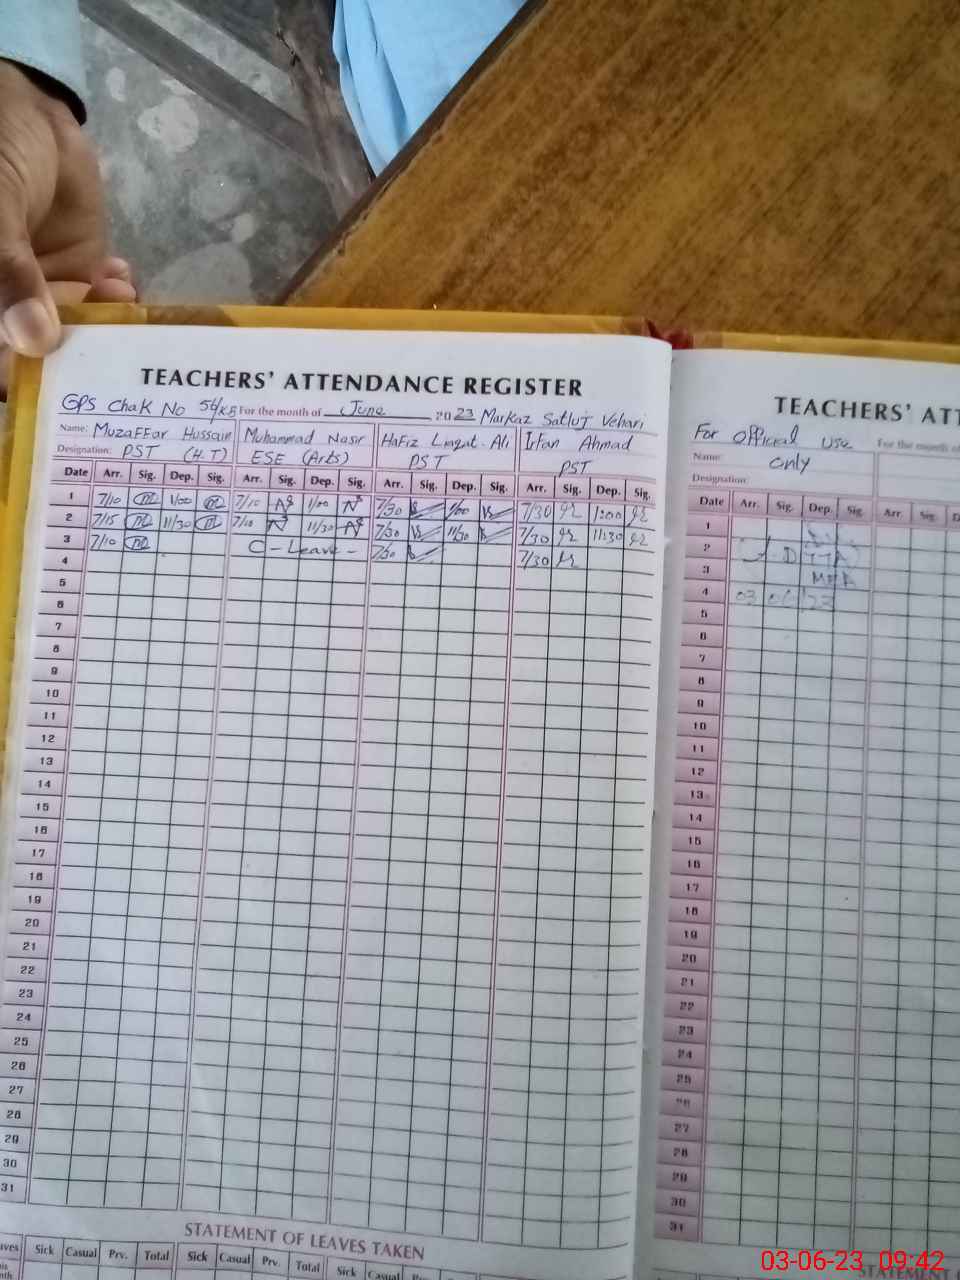 TEACHERS' ATTENDANCE REGISTER
GPS Chak No 56/KB For the month of June, 2023 Markaz Satluj Vehari
Name: Muzaffar Hussain Muhammad Nasir Hafiz Liaqat Ali Irfan Ahmad
Designation: PST (H.T) ESE (Arts) PST PST
Date Arr. Sig. Dep. Sig. Arr. Sig. Dep. Sig. Arr. Sig. Dep. Sig. Arr. Sig. Dep. Sig.
1 7/10 1/00 7/10 1/00 7/30 1/00 7/30 1:00
2 7/15 11/30 7/10 11/30 7/30 11/30 7/30 11:30
3 7/10 C-Leave- 7/30 7/30
4
5
6
7
8
9
10
11
12
13
14
15
16
17
18
19
20
21
22
23
24
25
26
27
28
29
30
31
STATEMENT OF LEAVES TAKEN
Sick Casual Prv. Total Sick Casual Prv. Total Sick Casual
TEACHERS' ATT
For Official use For the month o
Name: Only
Designation:
Date Arr. Sig. Dep. Sig. Arr. Sig. D
1
2
3
4 03 06 23
5
6
7
8
9
10
11
12
13
14
15
16
17
18
19
20
21
22
23
24
25
26
27
28
29
30
31
STATEMENT
03-06-23 09:42